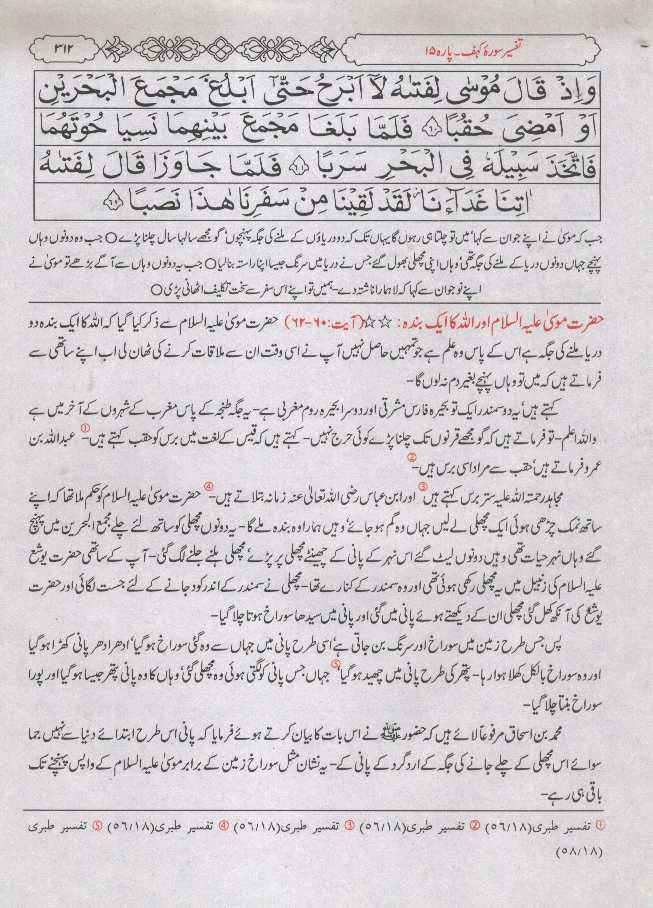 ۳۱۲
تفسیر سورۂ کہف۔ پارہ ۱۵
وَاِذْ قَالَ مُوْسٰى لِفَتٰىهُ لَاۤ اَبْرَحُ حَتّٰۤى اَبْلُغَ مَجْمَعَ الْبَحْرَيْنِ
اَوْ اَمْضِيَ حُقُبًا ۶۰ فَلَمَّا بَلَغَا مَجْمَعَ بَيْنِهِمَا نَسِيَا حُوْتَهُمَا
فَاتَّخَذَ سَبِيْلَهٗ فِي الْبَحْرِ سَرَبًا ۶۱ فَلَمَّا جَاوَزَا قَالَ لِفَتٰىهُ
اٰتِنَا غَدَآءَنَا لَقَدْ لَقِيْنَا مِنْ سَفَرِنَا هٰذَا نَصَبًا ۶۲
جب کہ موسیٰ نے اپنے جوان سے کہا' میں تو چلتا ہی رہوں گا یہاں تک کہ دو دریاؤں کے ملنے کی جگہ پہنچوں' گو مجھے سالہا سال چلنا پڑے ○ جب وہ دونوں وہاں
پہنچے جہاں دونوں دریا کے ملنے کی جگہ تھی' وہاں اپنی مچھلی بھول گئے جس نے دریا میں سرنگ جیسا اپنا راستہ بنا لیا ○ جب یہ دونوں وہاں سے آگے بڑھے تو موسیٰ نے
اپنے نوجوان سے کہا کہ لا ہمارا ناشتہ دے- ہمیں تو اپنے اس سفر سے سخت تکلیف اٹھانی پڑی ○
حضرت موسیٰ علیہ السلام اور اللہ کا ایک بندہ: ☆☆ (آیت: ۶۰-۶۲) حضرت موسیٰ علیہ السلام سے ذکر کیا گیا کہ اللہ کا ایک بندہ دو
دریا ملنے کی جگہ ہے اس کے پاس وہ علم ہے جو تمہیں حاصل نہیں آپ نے اسی وقت ان سے ملاقات کرنے کی ٹھان لی اب اپنے ساتھی سے
فرماتے ہیں کہ میں تو وہاں پہنچے بغیر دم نہ لوں گا-
کہتے ہیں' یہ دو سمندر ایک تو بحیرہ فارس مشرقی اور دوسرا بحیرہ روم مغربی ہے- یہ جگہ طنجہ کے پاس مغرب کے شہروں کے آخر میں ہے
واللہ اعلم- تو فرماتے ہیں کہ گو مجھے قرنوں تک چلنا پڑے کوئی حرج نہیں- کہتے ہیں کہ قیس کے لغت میں برس کو حقب کہتے ہیں-① عبداللہ بن
عمرو فرماتے ہیں' حقب سے مراد اسی برس ہیں-②
مجاہد رحمتہ اللہ علیہ ستر برس کہتے ہیں③ اور ابن عباس رضی اللہ تعالیٰ عنہ زمانہ بتلاتے ہیں-④ حضرت موسیٰ علیہ السلام کو حکم ملا تھا کہ اپنے
ساتھ نمک چڑھی ہوئی ایک مچھلی لے لیں جہاں وہ گم ہو جائے' وہیں ہمارا وہ بندہ ملے گا- یہ دونوں مچھلی کو ساتھ لئے چلے مجمع البحرین میں پہنچ
گئے وہاں نہر حیات تھی وہیں دونوں لیٹ گئے اس نہر کے پانی کے چھینٹے مچھلی پر پڑے' مچھلی ہلنے جلنے لگ گئی- آپ کے ساتھی حضرت یوشع
علیہ السلام کی زنبیل میں یہ مچھلی رکھی ہوئی تھی اور وہ سمندر کے کنارے تھا- مچھلی نے سمندر کے اندر کود جانے کے لئے جست لگائی اور حضرت
یوشع کی آنکھ کھل گئی مچھلی ان کے دیکھتے ہوئے پانی میں گئی اور پانی میں سیدھا سوراخ ہوتا چلا گیا-
پس جس طرح زمین میں سوراخ اور سرنگ بن جاتی ہے' اسی طرح پانی میں جہاں سے وہ گئی سوراخ ہو گیا' ادھر ادھر پانی کھڑا ہو گیا
اور وہ سوراخ بالکل کھلا ہوا رہا- پتھر کی طرح پانی میں چھید ہو گیا⑤ جہاں جس پانی کو لگتی ہوئی وہ مچھلی گئی' وہاں کا وہ پانی پتھر جیسا ہو گیا اور پورا
سوراخ بنتا چلا گیا-
محمد بن اسحاق مرفوعاً لائے ہیں کہ حضور ﷺ نے اس بات کا بیان کرتے ہوئے فرمایا کہ پانی اس طرح ابتدائے دنیا سے نہیں جما
سوائے اس مچھلی کے چلے جانے کی جگہ کے اردگرد کے پانی کے- یہ نشان مثل سوراخ زمین کے برابر موسیٰ علیہ السلام کے واپس پہنچنے تک
باقی ہی رہے-
① تفسیر طبری (۵۶/۱۸) ② تفسیر طبری (۵۶/۱۸) ③ تفسیر طبری (۵۶/۱۸) ④ تفسیر طبری (۵۶/۱۸) ⑤ تفسیر طبری
(۵۸/۱۸)